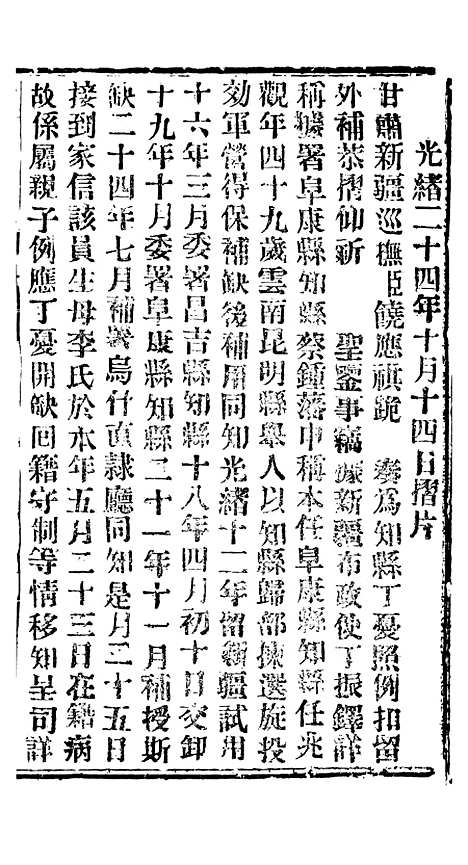 光緒二十四年十月十四日摺片
甘肅新疆巡撫臣饒應祺跪　奏為知縣丁憂照例扣留
外補恭摺仰祈　聖鑒事竊據新疆布政使丁振鐸詳
稱據署阜康縣知縣蔡鍾藩申稱本任阜康縣知縣任兆
觀年四十九歲雲南昆明縣舉人以知縣歸部揀選旋投
効軍營得保補缺後補用同知光緒十二年留新疆試用
十六年三月委署昌吉縣知縣十八年四月初十日交卸
十九年十月委署阜康縣知縣二十一年十一月補授斯
缺二十四年七月補署烏什直隸廳同知是月二十五日
接到家信該員生母李氏於本年五月二十三日在籍病
故係屬親子例應丁憂開缺回籍守制等情移知呈司詳